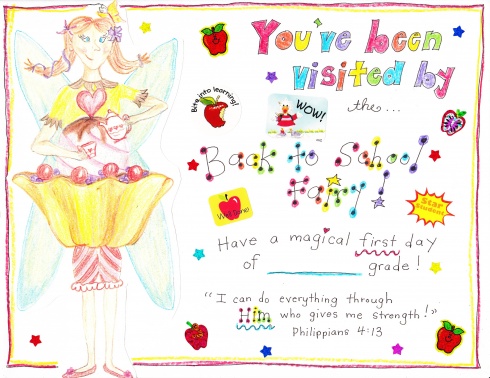 You've been
visited by
the...
Bite into learning!
WOW!
Back to School
Fairy!
Welcome
Star
Student
Have a magical first day
of ________ grade!
"I can do everything through
Him who gives me strength!"
Philippians 4:13